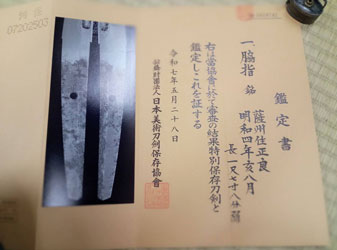 鑑定書
一、脇指 銘 薩州住正良
明和四年亥八月
長一尺七寸八分
右は當協會に於て審査の結果特別保存刀剣と
鑑定しこれを証する
令和七年五月二十八日
公益財団法人 日本美術刀剣保存協會